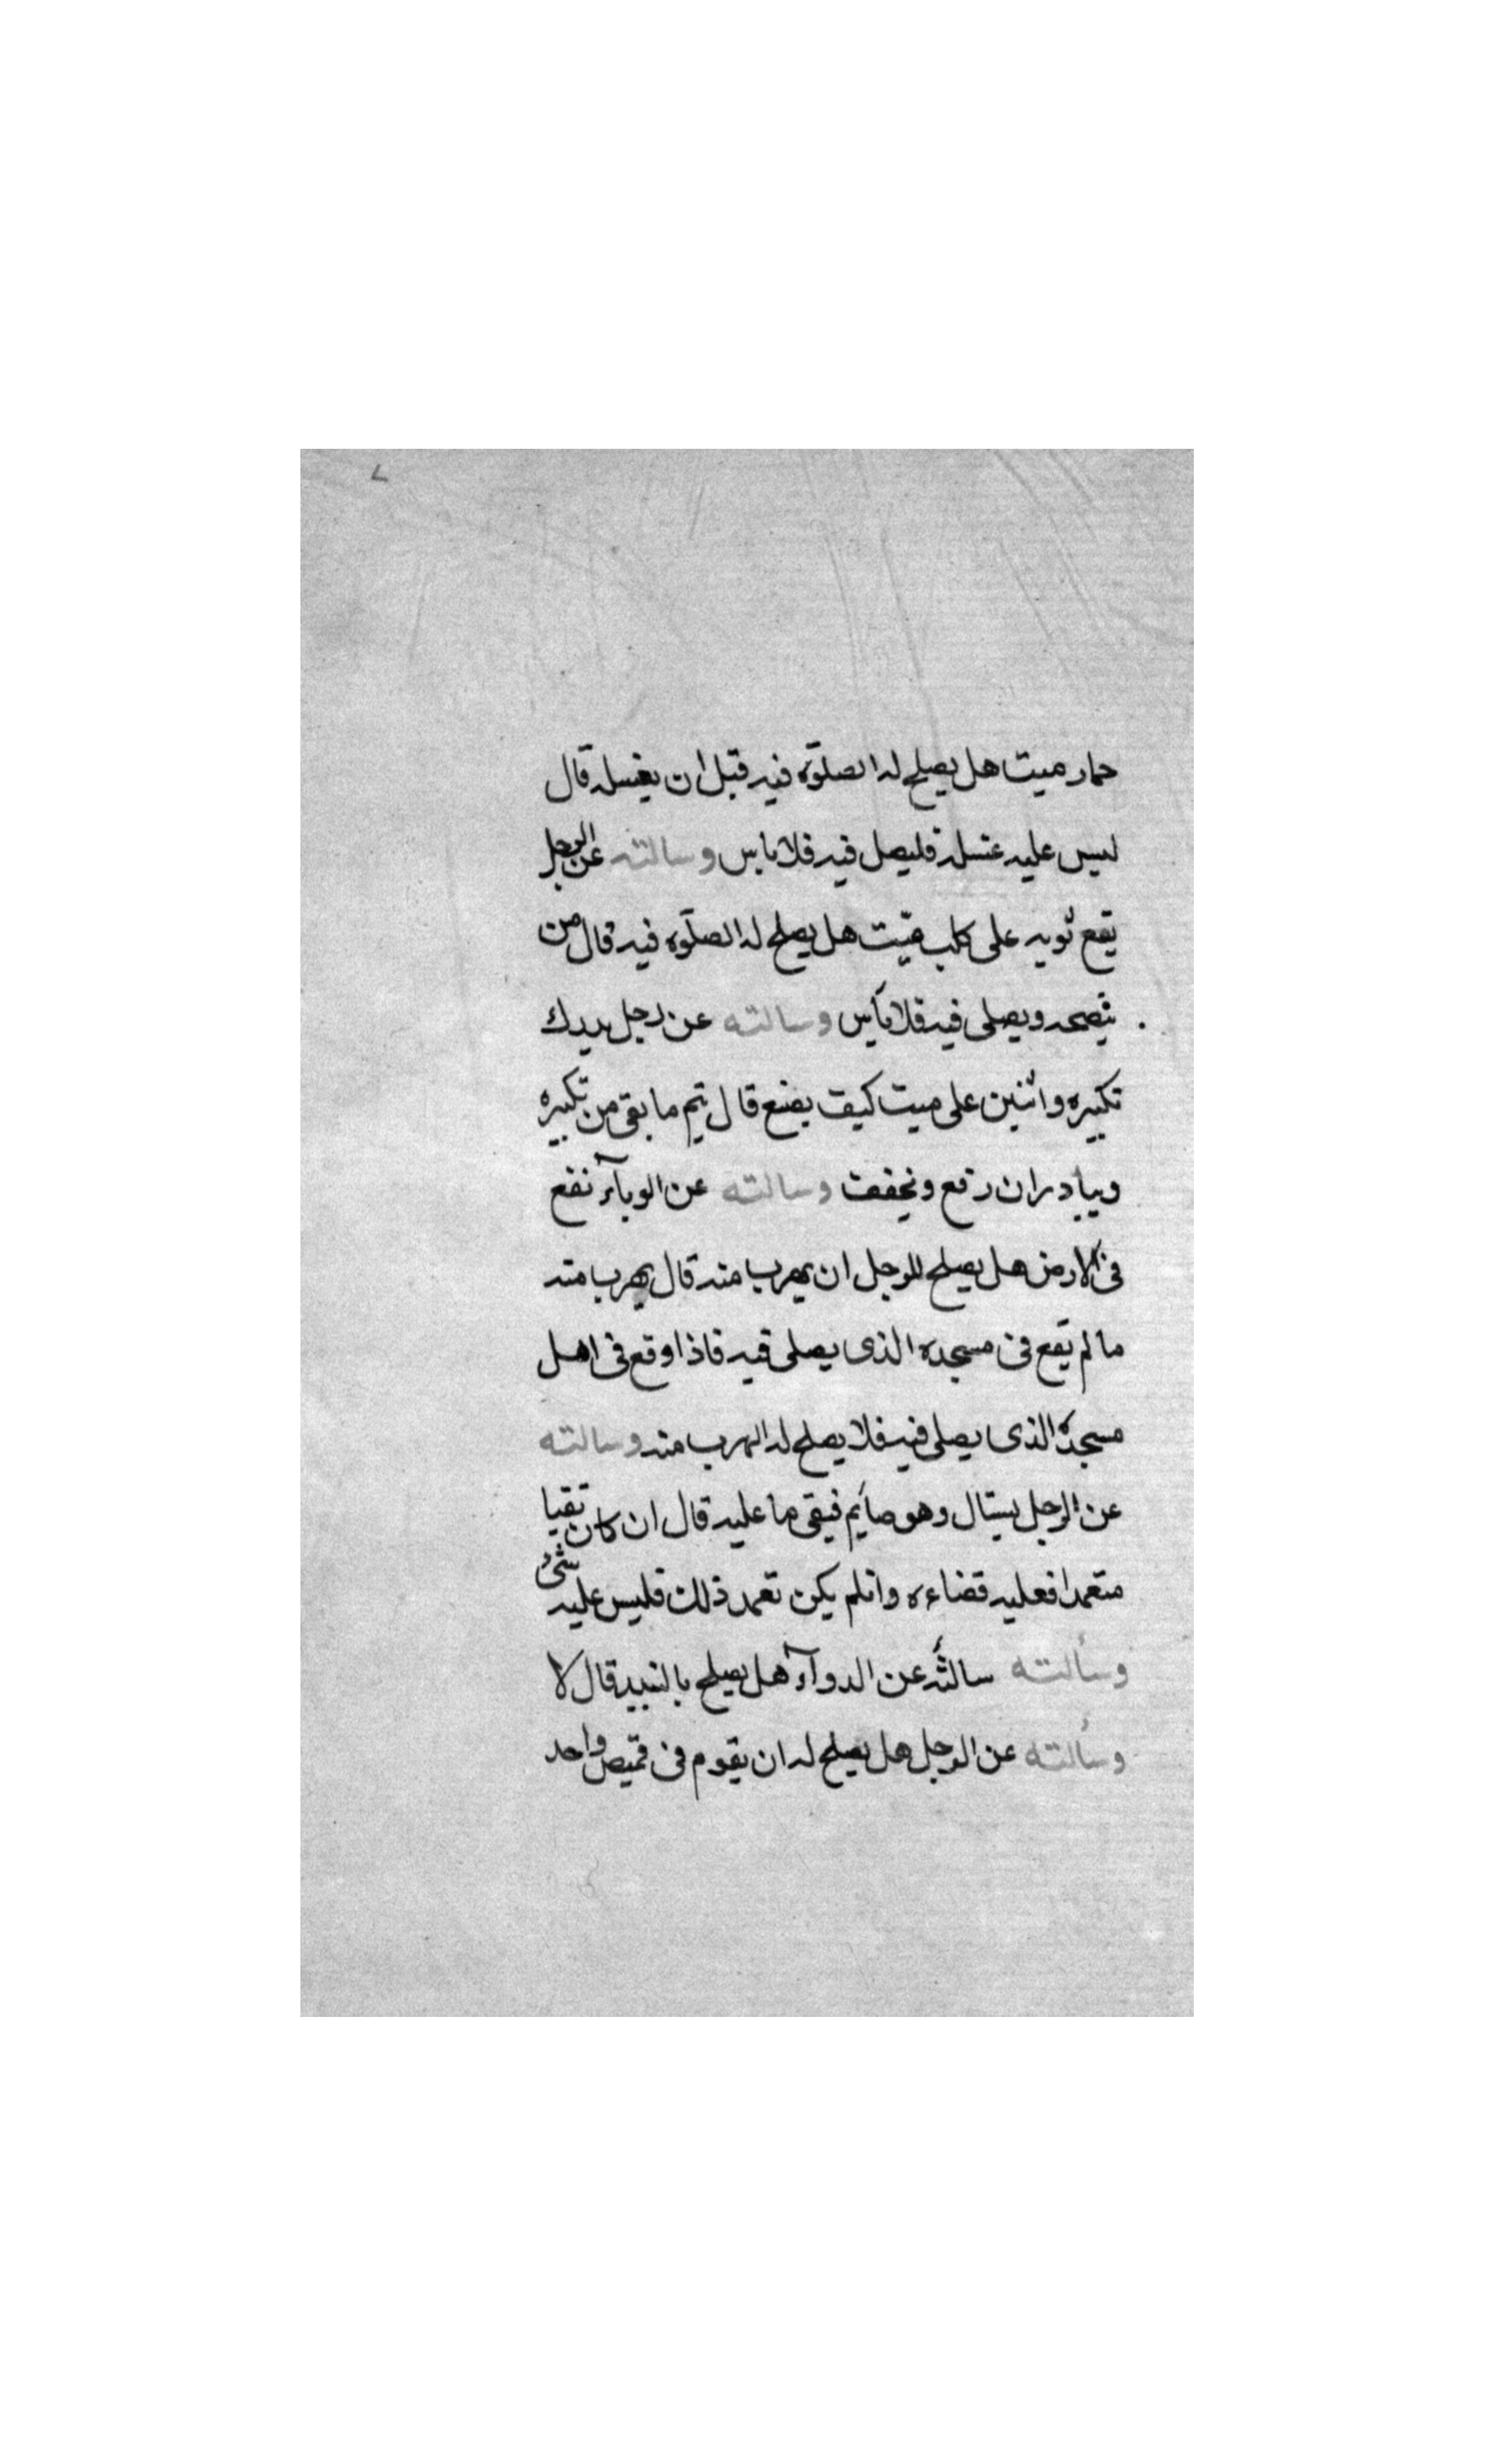 حمار ميت هل يصلح له الصلوة فيه قبل ان يغسله قال
ليس عليه غسله فليصل فيه فلا باس وسالته عن الرجل
يقع ثوبه على كلب ميّت هل يصلح له الصلوة فيه قال من
ينضحه ويصلى فيه فلا بأس وسالته عن رجل يدرك
تكبيره واثنين على ميت كيف يصنع قال يتم ما بقى من تكبيره
ويبادر ان رفع ونخفف وسالته عن الوبآء نفع
فى الارض هل يصلح للرجل ان يهرب منه قال يهرب منه
ما لم يقع فى مسجده الذى يصلى فيه فاذا وقع فى اهل
مسجده الذى يصلى فيه فلا يصلح له الهرب منه وسالته
عن الرجل يستاك وهو صايم فيقى ما عليه قال ان كان تقيا
متعمدا فعليه قضاءه وانلم يكن تعمد ذلك فليس عليه شئ
وسألته سالته عن الدوآء هل يصلح بالنبيد قال لا
وسألته عن الرجل هل يصلح له ان يقوم فى قميص واحد